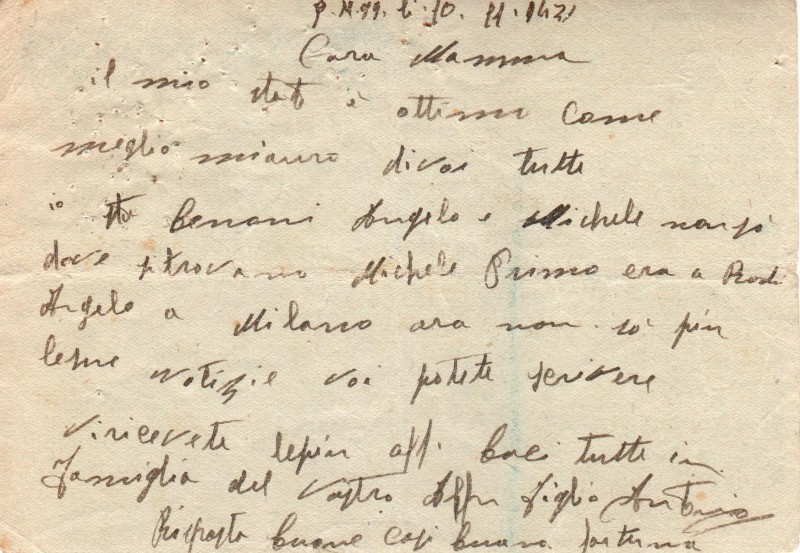 P.M. 99. li. 10. 11. 1942
Cara Mamma
il mio stato è ottimo come
meglio miauro di voi tutti
io sto Angelo e Michele non sò
dove si trovano Michele Primo era a Rodi
Angelo a Milano ora non sò piu
le sue Notizzie voi potete scrivere
Viricevete lepiu aff. baci tutti in
famiglia del Vostro Aff. figlio Antonio
Risposta buone cose buona fortuna